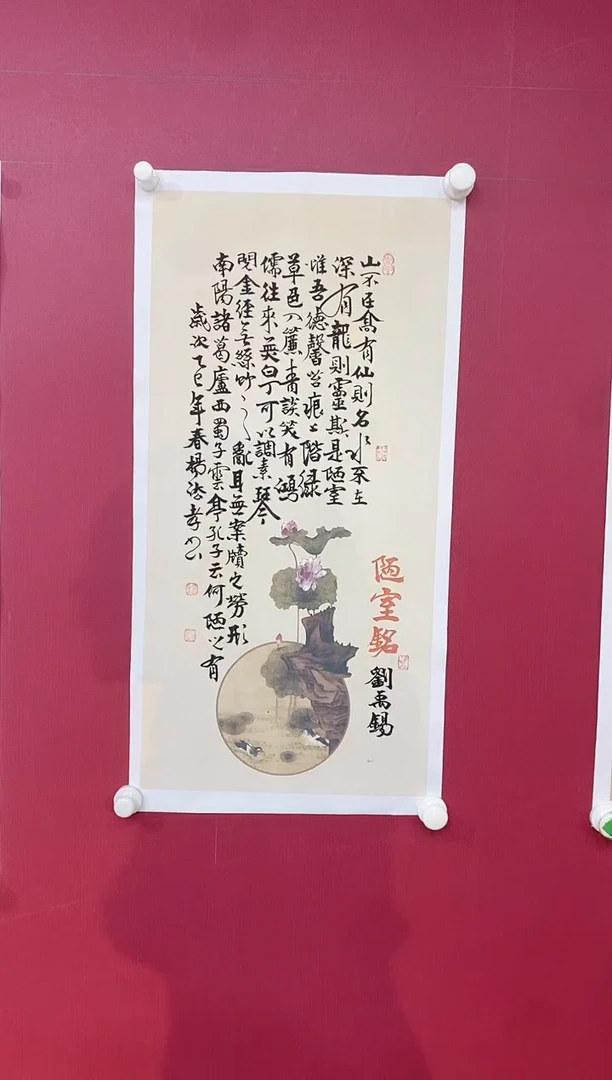 陋室銘
劉禹錫
山不在高有仙則名水不在
深有龍則靈斯是陋室
惟吾德馨苔痕上階緑
草色入簾青談笑有鴻
儒往來無白丁可以調素琴
閱金經無絲竹之亂耳無案牘之勞形
南陽諸葛廬西蜀子雲亭孔子云何陋之有
歲次乙巳年春楊